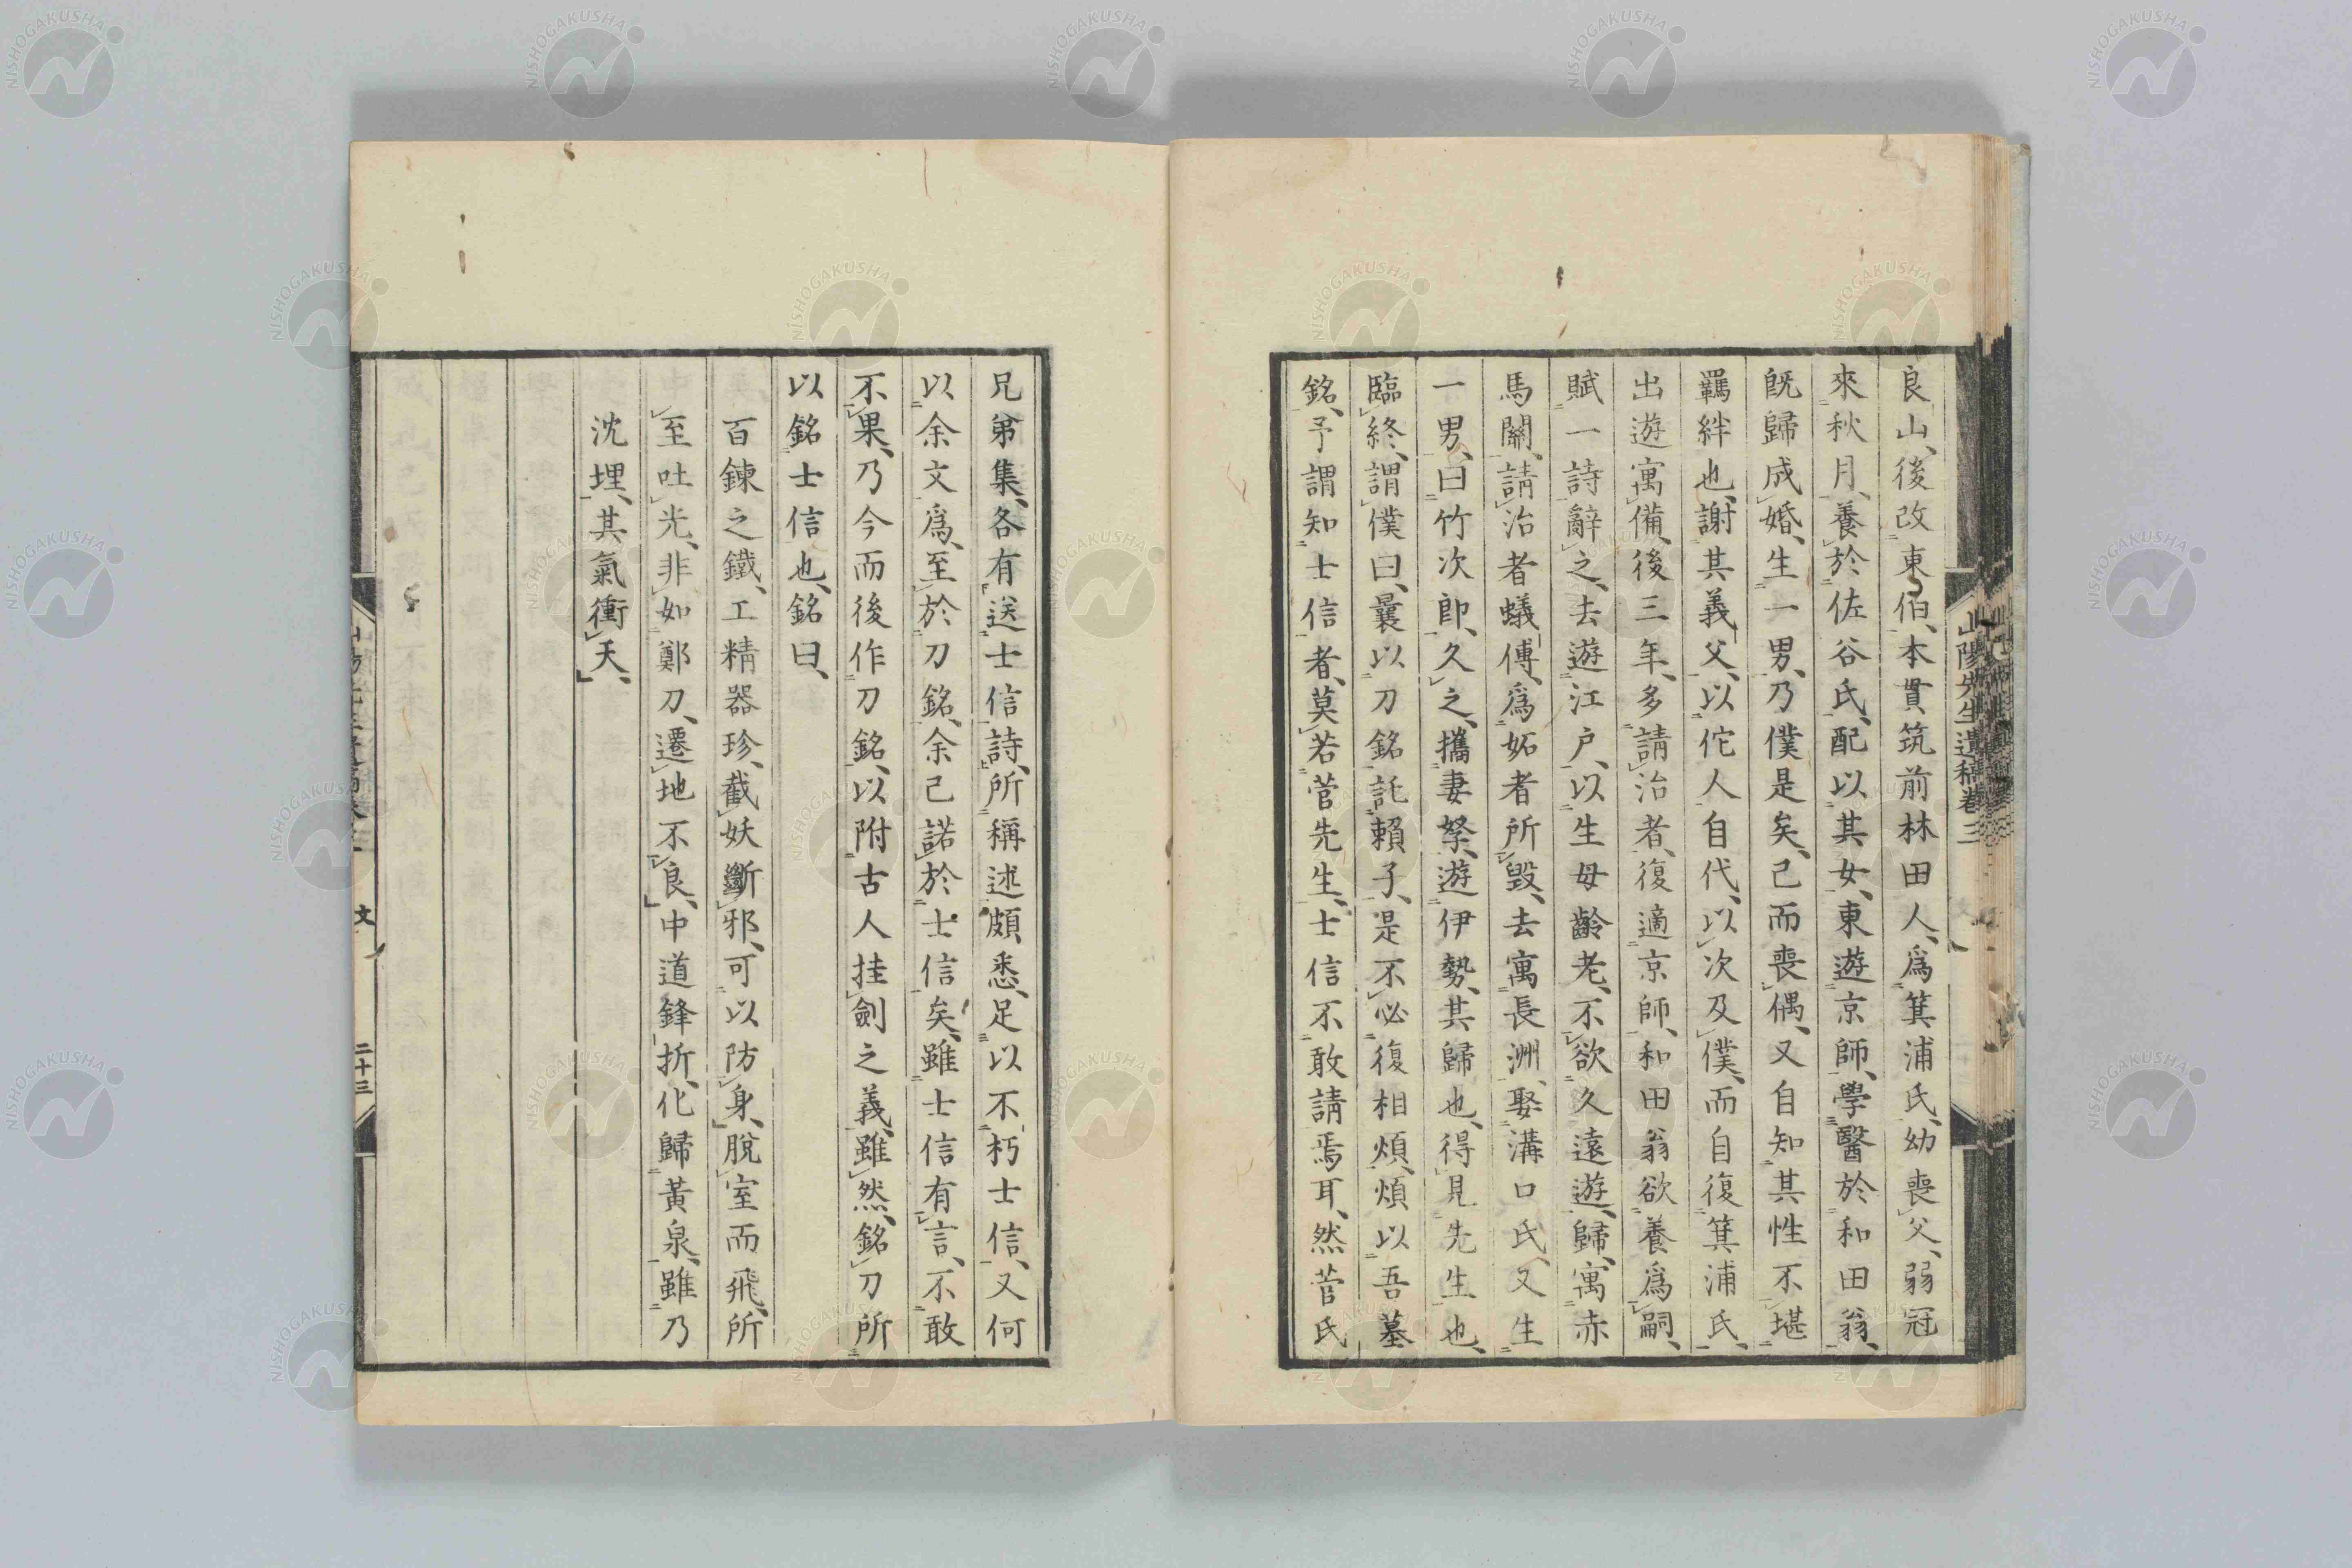 良山、後改東伯、本貫筑前林田人、爲箕浦氏、幼喪父、弱冠
來秋月、養於佐谷氏、配以其女、東遊京師、學醫於和田翁、
既歸成婚、生一男、乃僕是矣、已而喪偶、又自知其性不堪
羈絆也、謝其義父、以佗人自代、以次及僕、而自復箕浦氏、
出遊寓備、後三年、多請治者、復適京師、和田翁欲養爲嗣、
賦一詩辭之、去遊江戸、以生母齡老、不欲久遠遊、歸寓赤
馬關、請治者蟻傅、爲妬者所毀、去寓長洲、娶溝口氏、又生
一男、曰竹次郎、久之、攜妻孥、遊伊勢、其歸也、得見先生也、
臨終、謂僕曰、曩以刀銘託賴子、是不必復相煩、煩以吾墓
銘、予謂知士信者、莫若菅先生、士信不敢請焉耳、然菅氏
山陽先生遺稿卷三
兄弟集、各有送士信詩、所稱述頗悉、足以不朽士信、又何
以余文爲、至於刀銘、余已諾於士信矣、雖士信有言、不敢
不果、乃今而後作刀銘、以附古人挂劍之義、雖然、銘刀所
以銘士信也、銘曰、
百鍊之鐵、工精器珍、截妖斷邪、可以防身、脫室而飛、所
至吐光、非如鄭刀、遷地不良、中道鋒折、化歸黃泉、雖乃
沈埋、其氣衝天、
文
二十三
NISHOGAKUSHA